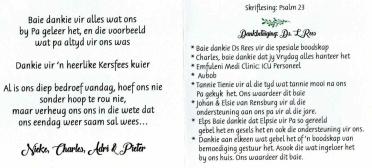 Baie dankie vir alles wat ons
by Pa geleer het, en die voorbeeld
wat pa altyd vir ons was
Dankie vir 'n heerlike Kersfees kuier
Al is ons diep bedroef vandag, hoef ons nie
sonder hoop te rou nie,
maar verheug ons ons in die wete dat
ons eendag weer saam sal wees...
Nieke, Charles, Adri & Pieter
Skriflesing: Psalm 23
Dankbetuiging: Ds. L Rees
* Baie dankie Ds Rees vir die spesiale boodskap
* Charles, baie dankie dat jy Vrydag alles hanteer het
* Emfuleni Medi Clinic: ICU Personeel
* Aubob
* Tannie Tienie vir al die tyd wat tannie mooi na ons
Pa gekyk het. Ons waardeer dit baie
* Johan & Elsie van Rensburg vir al die
ondersteuning aan ons pa vir al die jare.
* Elps Baie dankie dat Elpsie vir Pa so gereeld
gebel het en gesels het en ook die ondersteuning vir ons.
* Dankie aan elkeen wat gebel het of 'n boodskap van
bemoediging gestuur het. Asook die wat ingeloer het
by ons huis. Ons waardeer dit baie.